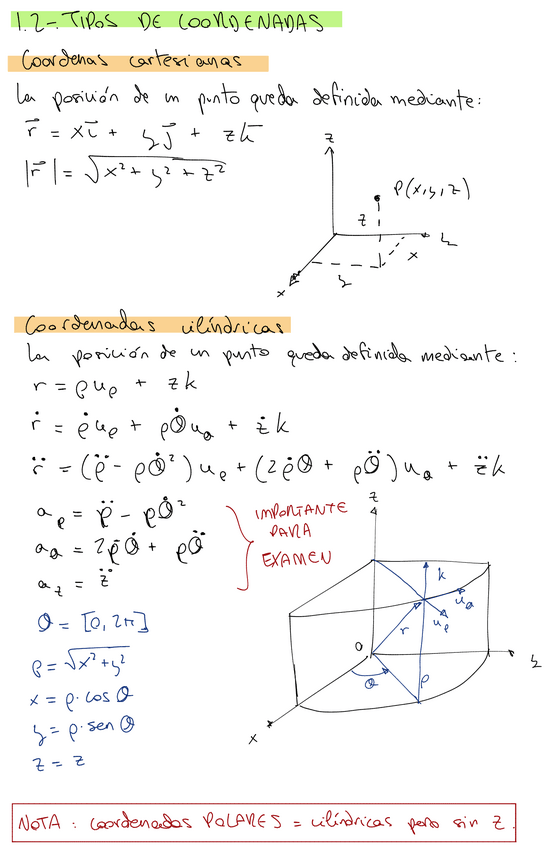 1.2-. TIPOS DE COORDENADAS
Coordenas cartesianas
La posición de un punto queda definida mediante:
r⃗ = xi⃗ + yj⃗ + zk⃗
|r⃗| = √(x² + y² + z²)
z
P(x,y,z)
z
y
x
y
x
Coordenadas cilíndricas
La posición de un punto queda definida mediante:
r = ρu_ρ + zk
ṙ = ρ̇u_ρ + ρθ̇u_θ + żk
r̈ = (ρ̈ - ρθ̇²)u_ρ + (2ρ̇θ + ρθ̈)u_θ + z̈k
a_ρ = ρ̈ - ρθ̇²
a_θ = 2ρ̇θ̇ + ρθ̈
a_z = z̈
IMPORTANTE
PARA
EXAMEN
θ = [0, 2π]
ρ = √(x² + y²)
x = ρ·cos θ
y = ρ·sen θ
z = z
z
k
u_θ
u_ρ
r
O
θ
ρ
y
x
NOTA : coordenadas POLARES = cilíndricas pero sin z.